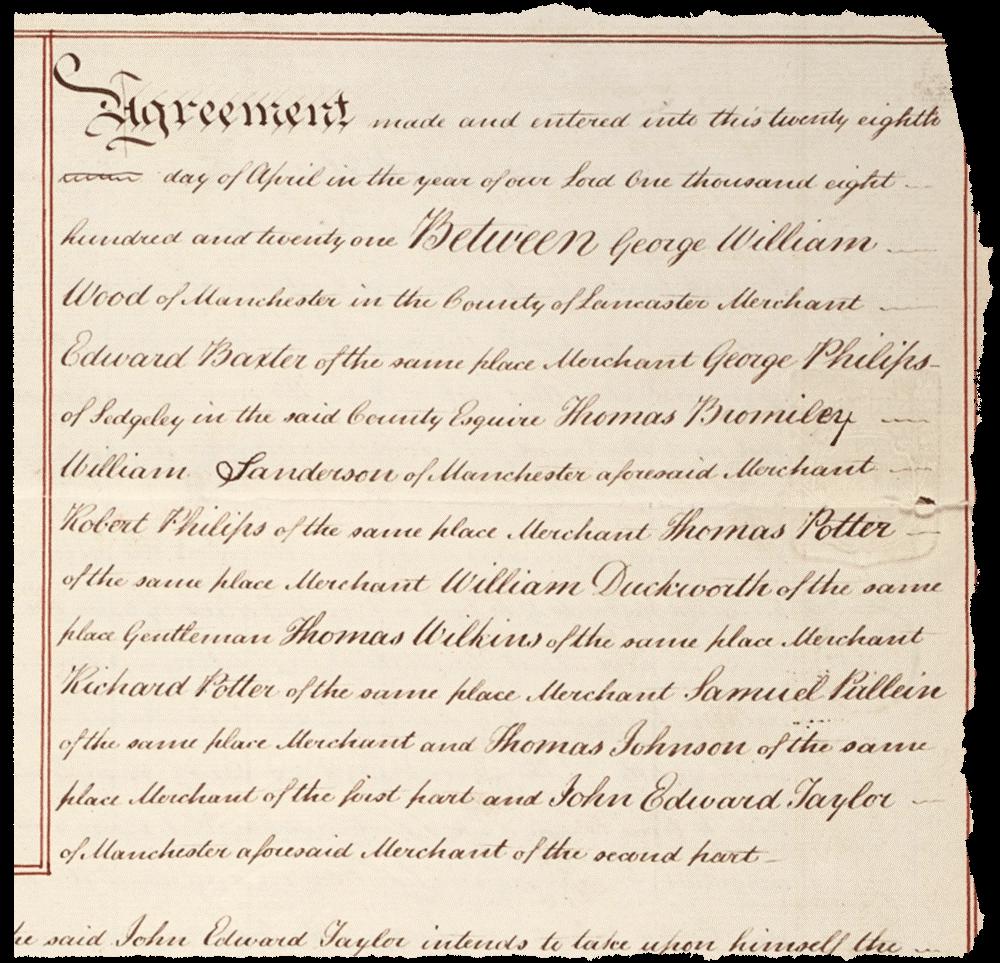 Agreement made and entered into this twenty eighth
day of April in the year of our Lord One thousand eight
hundred and twenty one Between George William
Wood of Manchester in the County of Lancaster Merchant
Edward Baxter of the same place Merchant George Philips
of Sedgeley in the said County Esquire Thomas Bromiley
William Sanderson of Manchester aforesaid Merchant
Robert Philips of the same place Merchant Thomas Potter
of the same place Merchant William Duckworth of the same
place Gentleman Thomas Wilkins of the same place Merchant
Richard Potter of the same place Merchant Samuel Pullein
of the same place Merchant and Thomas Johnson of the same
place Merchant of the first part and John Edward Taylor
of Manchester aforesaid Merchant of the second part
said John Edward Taylor intends to take upon himself the